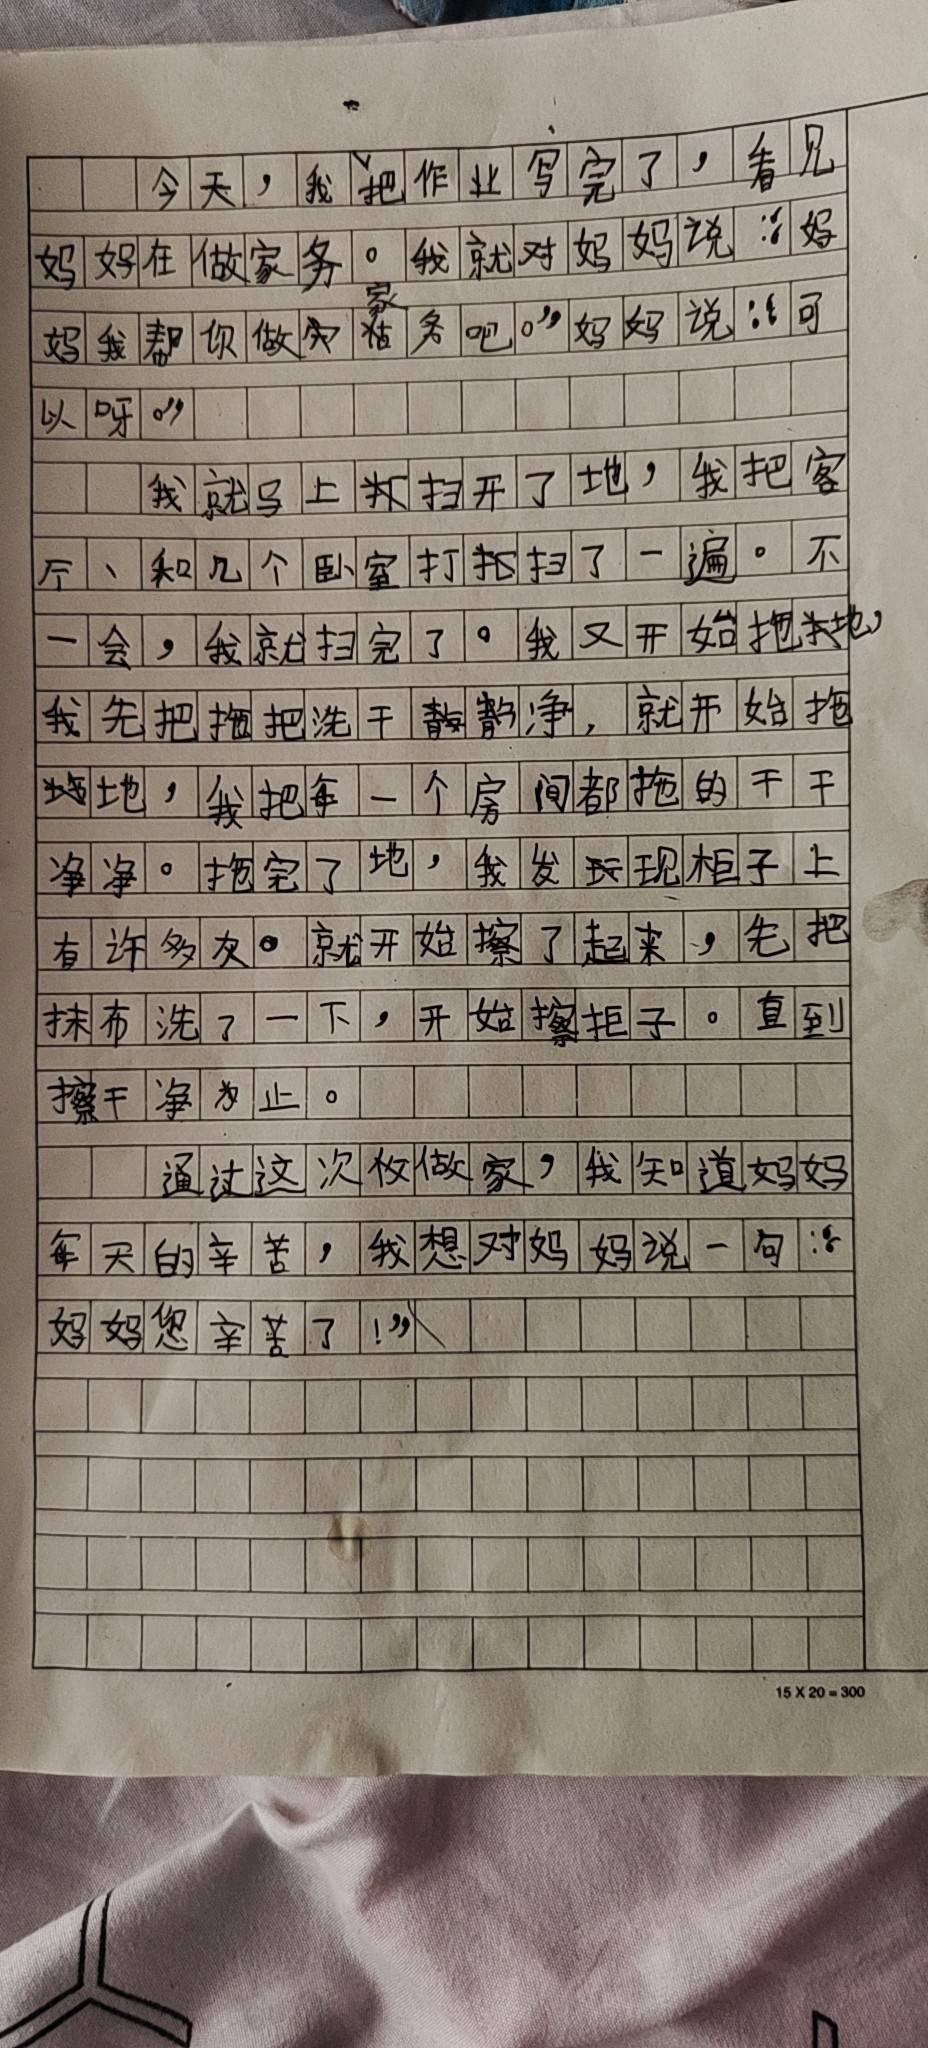 今天，我把作业写完了，看见
妈妈在做家务。我就对妈妈说：“妈
妈我帮你做家务吧。”妈妈说：“可
以呀。”
我就马上扫开了地，我把客
厅、和几个卧室打扫了一遍。不
一会，我就扫完了。我又开始拖地，
我先把拖把洗干净，就开始拖
地，我把每一个房间都拖的干干
净净。拖完了地，我发现柜子上
有许多灰。就开始擦了起来，先把
抹布洗了一下，开始擦柜子。直到
擦干净为止。
通过这次做家，我知道妈妈
每天的辛苦，我想对妈妈说一句：“
妈妈您辛苦了！”
15 X 20 = 300